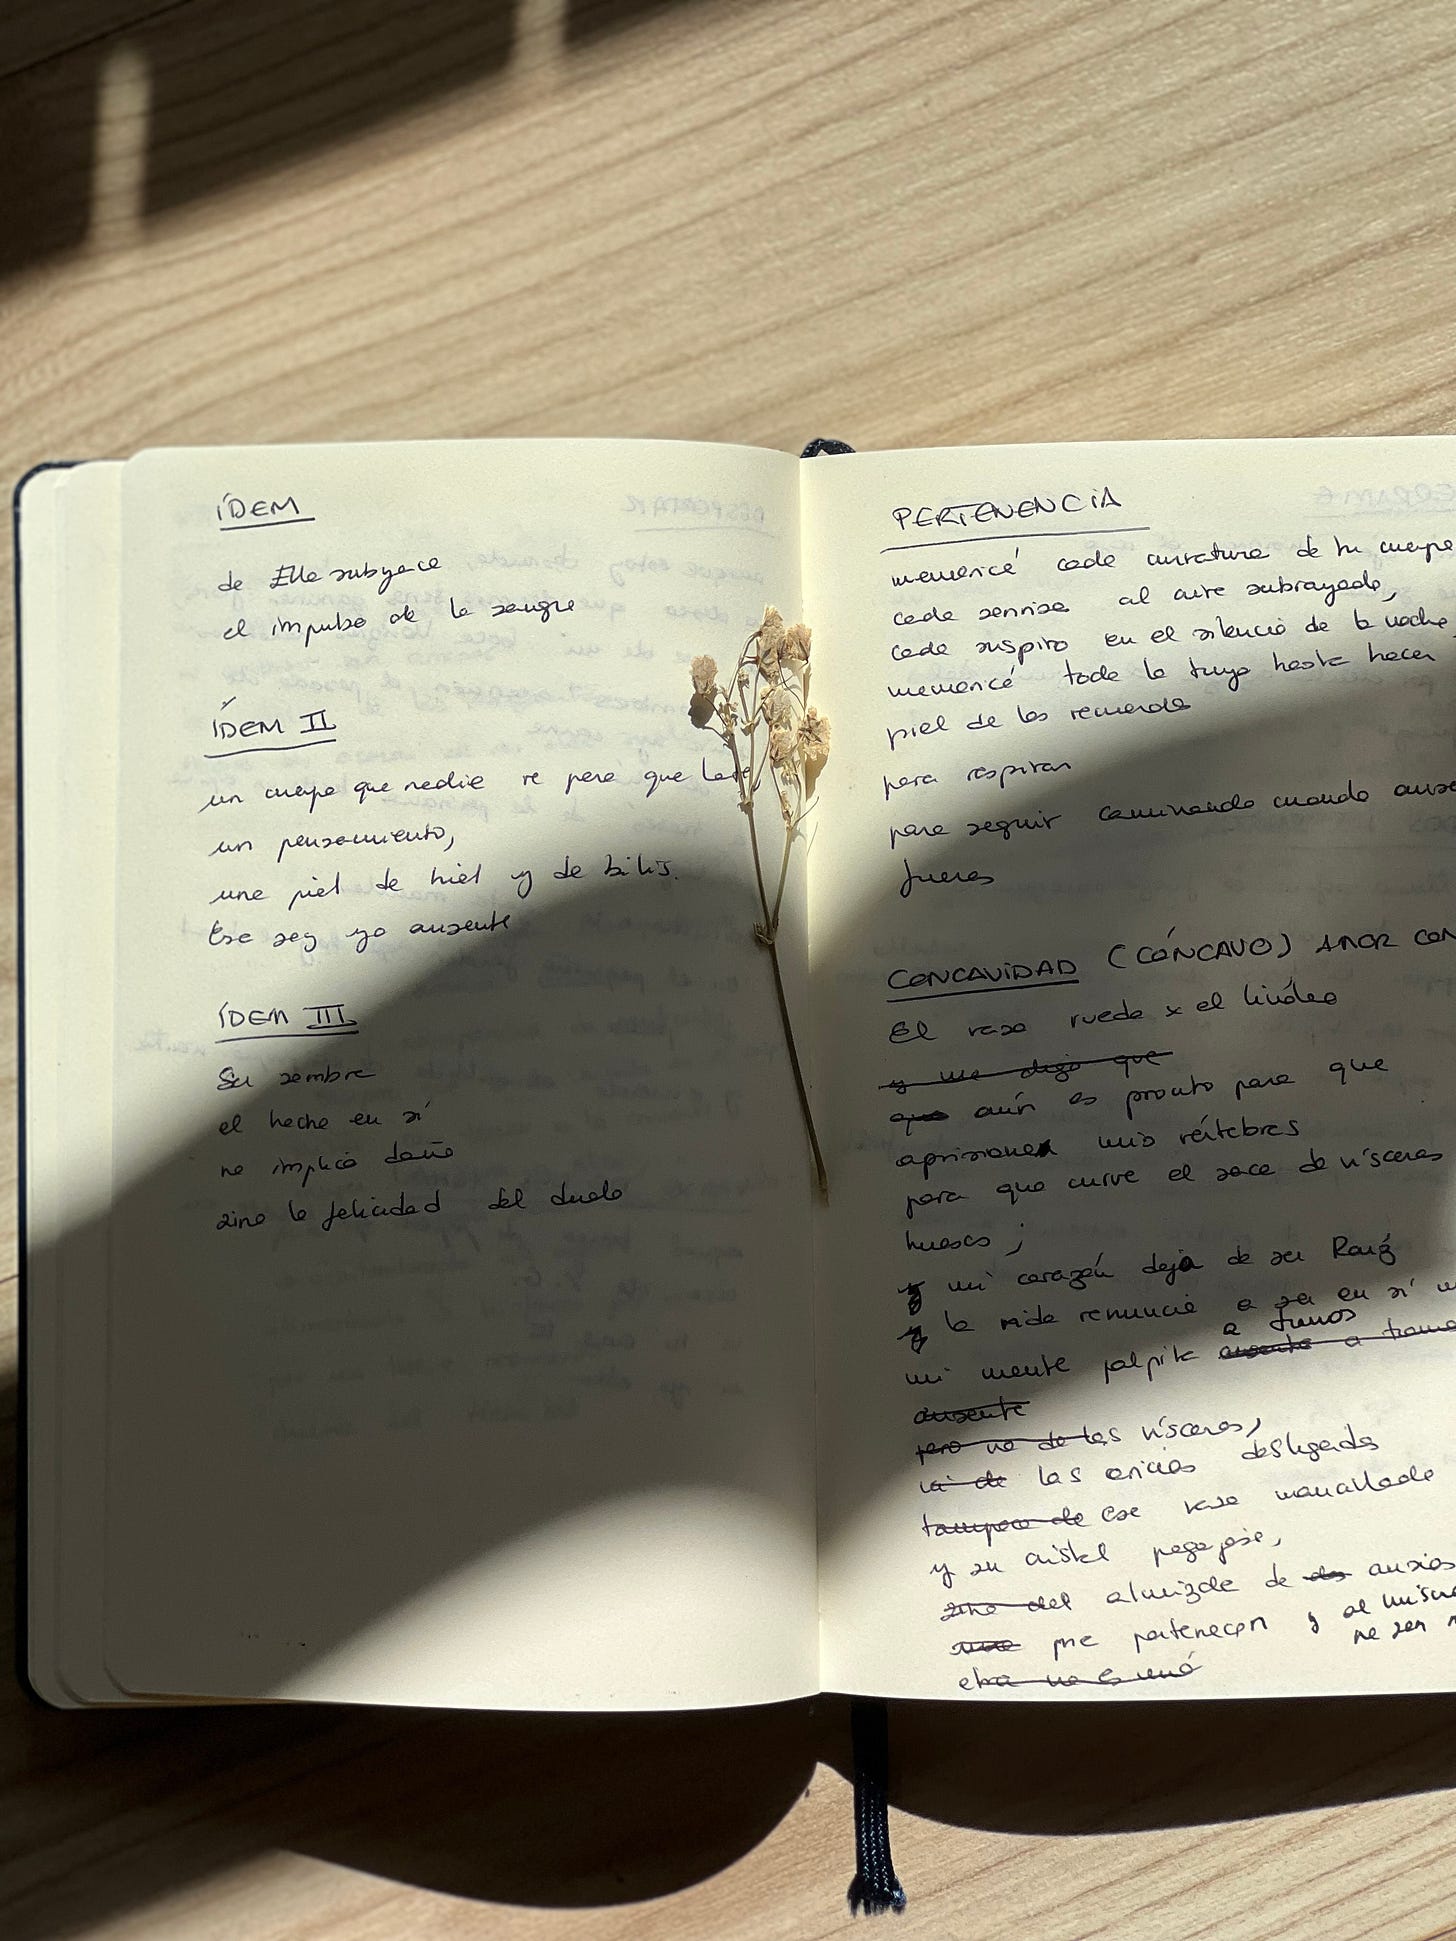 ÍDEM
de Ella subyace
el impulso de la sangre
ÍDEM II
un cuerpo que nadie ve pero que late
un pensamiento,
una piel de hiel y de bilis.
Ese soy yo ausente
ÍDEM III
Su sombra
el hecho en sí
no implica daño
sino la felicidad del duelo
PERTENENCIA
memoricé cada curvatura de tu cuerpo
cada sonrisa al aire subrayada,
cada suspiro en el silencio de la noche
memoricé todo lo tuyo hasta hacer
piel de los recuerdos
para respirar
para seguir caminando cuando
fueras
CONCAVIDAD (CÓNCAVO) AMOR CON
El vaso rueda x el linóleo
y me digo que
que aún es pronto para que
aprisionen mis vértebras
para que curve el saco de vísceras
huesos ;
y mi corazón deja de ser Raíz
y la vida renuncia a ser en sí
a tramos
mi mente palpita ausente a tramos
ausente
pero no de las vísceras,
ni de las caricias desligadas
tampoco de ese vaso manallado
y su cristal pegajoso,
sino del almizcle de ansias
que pertenecen y al mismo
no son
otra no es una